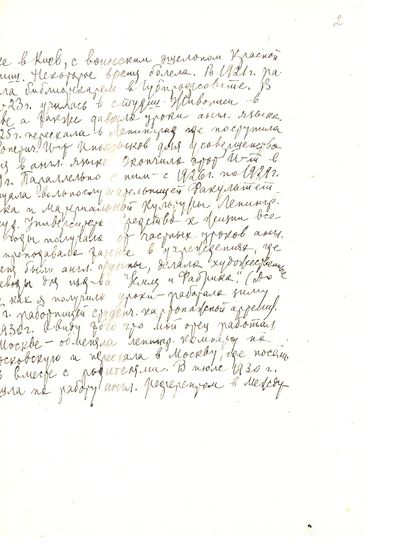 2
се в Киев, с воинским эшелоном Красной
Некоторое время болела. В 1921г. ра-
ла библиотекарем в Губпрофсовете. В
-23г. училась в студии Живописи в
ве а также давала уроки англ. языка.
25г. переехала в Ленинград где поступила
для усовершенство
ия в англ. языке окончила этот И-т в
г. Параллельно с ним - с 1926г. по 1929г.
щала вольнослушательницей Факультет
ка и Материальной Культуры Ленингр.
суд. Университета. Средства к жизни все
годы получала от частных уроков англ.
преподавала также в учреждениях, где
были англ. группы, делала художественные
еводы для изд-ва "Земля и Фабрика". (До
как я получила уроки - работала зиму
г. работницей студенч. картонажной артели.
1930г. ввиду того что мой отец работал
Москве - обменяла ленингр. комнату на
осковскую и переехала в Москву, где посели
вместе с родителями. В июле 1930г.
пила на работу англ. референтом в Между-